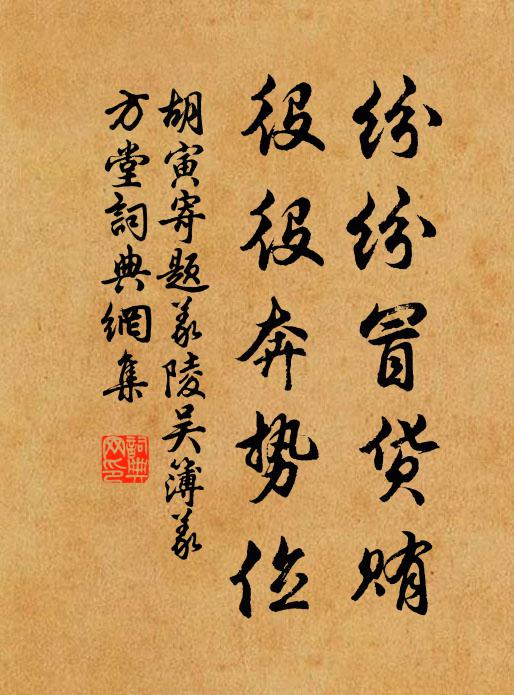 纷纷冒货贿
役役奔势位
胡寅寄题义陵吴簿义
方堂詞典網集
詞典网印